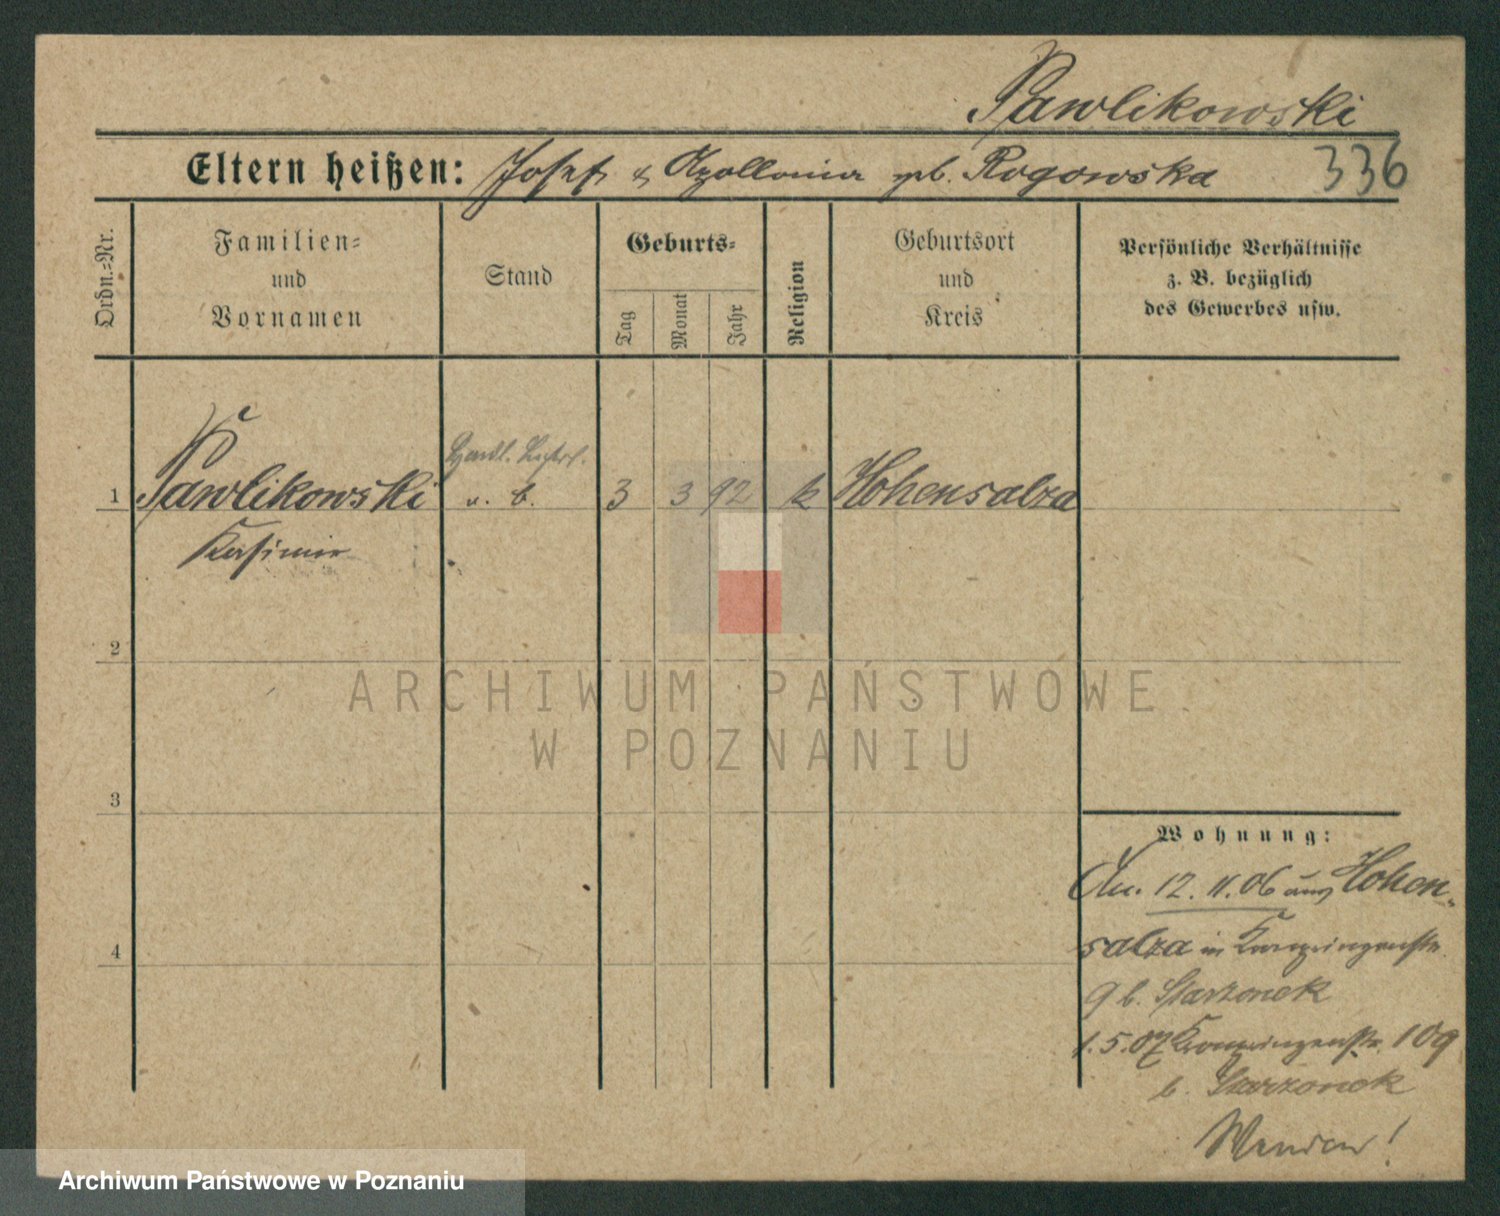 Pawlikowski
Eltern heißen: Josef & Apollonia geb. Rogowska 336
Ordn.=Nr.
Familien=
und
Vornamen
Stand
Geburts=
Tag
Monat
Jahr
Religion
Geburtsort
und
Kreis
Persönliche Verhältnisse
z. B. bezüglich
des Gewerbes usw.
1 Pawlikowski
Kasimir
Handl.
u. b.
3 3 92 k Hohensalza
2
3
4
Wohnung:
An. 12. 11. 06 aus Hohen-
salza in Kronprinzenstr.
9 b. Starzonek
1. 5. 07 Kronprinzenstr. 109
b. Starzonek
Wenden!
ARCHIWUM PAŃSTWOWE
W POZNANIU
Archiwum Państwowe w Poznaniu